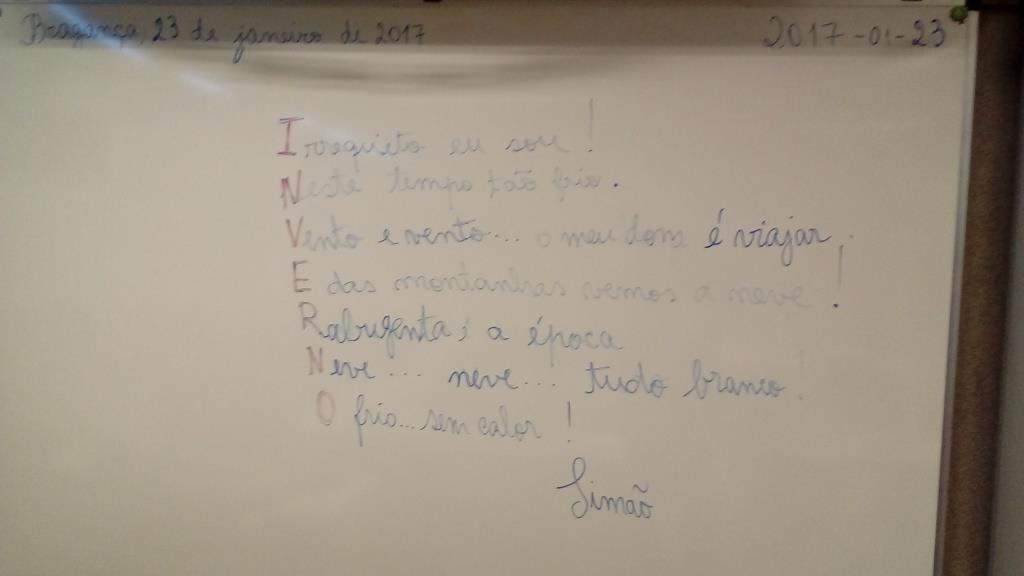 Bragança, 23 de janeiro de 2017
2017-01-23
Irrequieto eu sou!
Neste tempo tão frio.
Vento e vento... o meu dom é viajar,
E das montanhas vemos a neve!
Rabugenta, a época
Neve... neve... tudo branco!
O frio... sem calor!
Simão